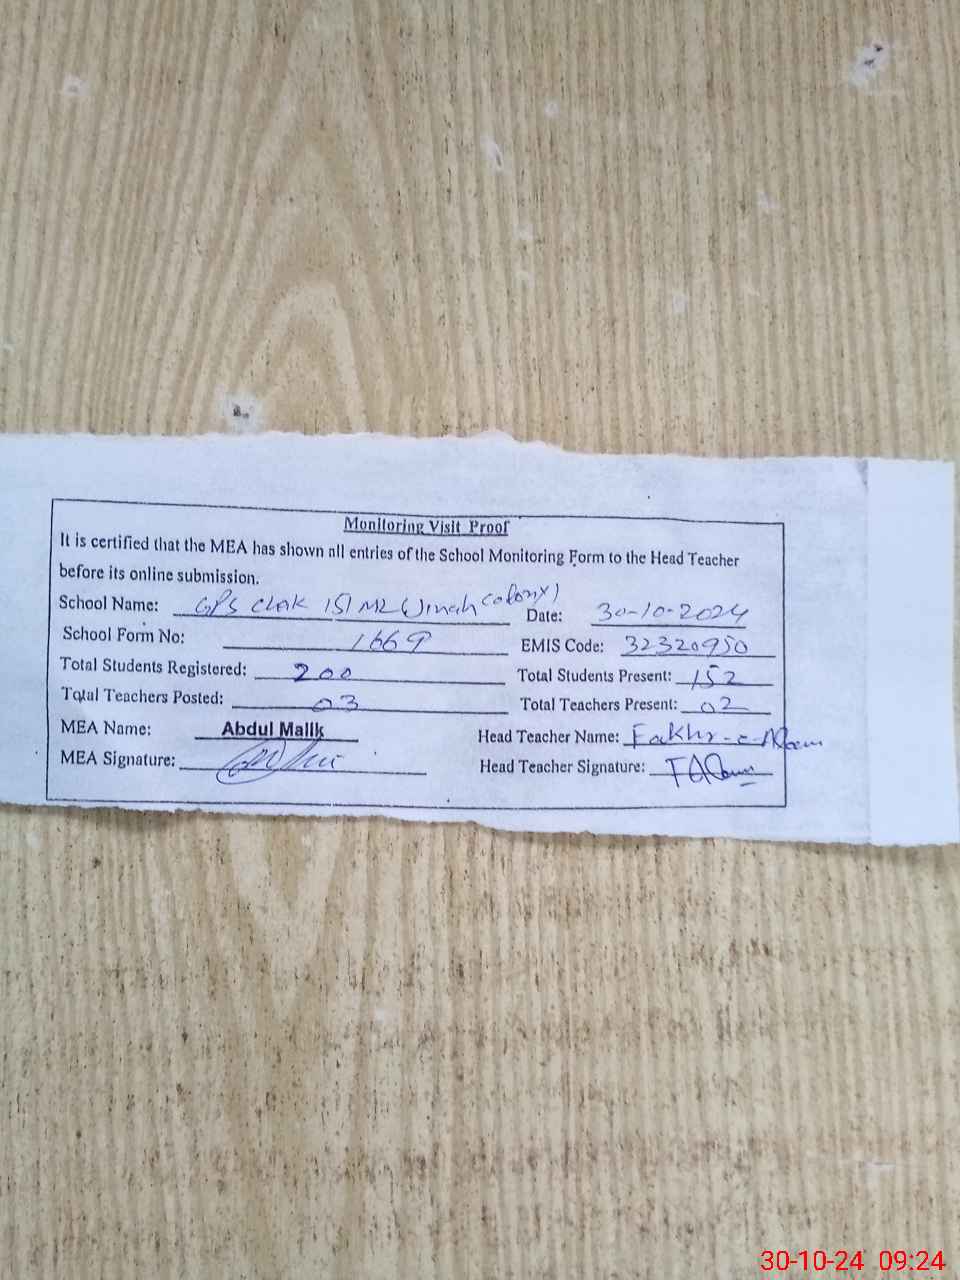 Monitoring Visit Proof
It is certified that the MEA has shown all entries of the School Monitoring Form to the Head Teacher
before its online submission.
School Name: GPS Chak 151 ML (Jinah Colony) Date: 30-10-2024
School Form No: 1669 EMIS Code: 32320950
Total Students Registered: 200 Total Students Present: 152
Total Teachers Posted: 03 Total Teachers Present: 02
MEA Name: Abdul Malik Head Teacher Name: Fakhr-e-Alam
MEA Signature: Head Teacher Signature: FAlam
30-10-24 09:24